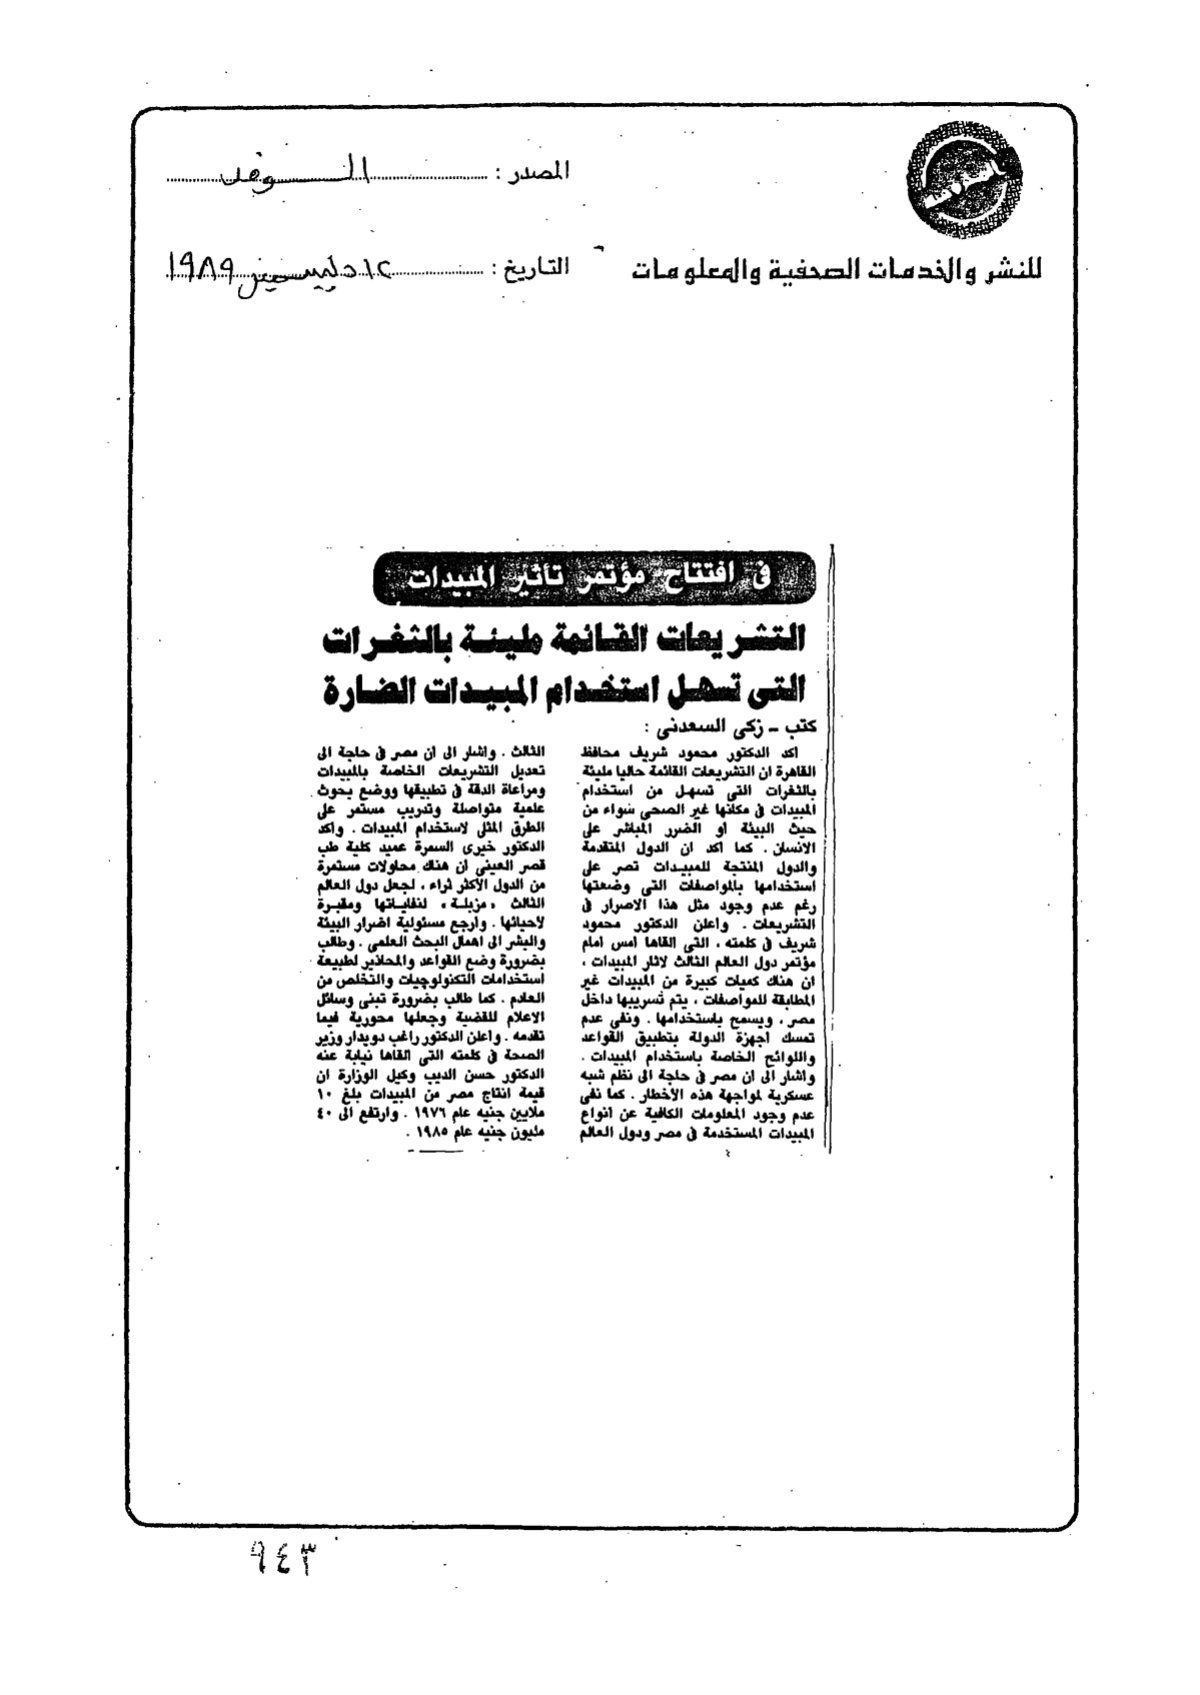 المصدر : الـــوفد
للنشر والخدمات الصحفية والمعلومات
التاريخ : ١٢ ديسمبر ١٩٨٩
فى افتتاح مؤتمر تأثير المبيدات
التشريعات القائمة مليئة بالثغرات
التى تسهل استخدام المبيدات الضارة
كتب ـ زكى السعدنى :
اكد الدكتور محمود شريف محافظ
القاهرة ان التشريعات القائمة حاليا مليئة
بالثغرات التى تسهل من استخدام
المبيدات فى مكانها غير الصحى سواء من
حيث البيئة أو الضرر المباشر على
الانسان . كما اكد ان الدول المتقدمة
والدول المنتجة للمبيدات تصر على
استخدامها بالمواصفات التى وضعتها
رغم عدم وجود مثل هذا الاصرار فى
التشريعات . واعلن الدكتور محمود
شريف فى كلمته ، التى القاها امس امام
مؤتمر دول العالم الثالث لاثار المبيدات ،
ان هناك كميات كبيرة من المبيدات غير
المطابقة للمواصفات ، يتم تسريبها داخل
مصر ، ويسمح باستخدامها . ونفى عدم
تمسك أجهزة الدولة بتطبيق القواعد
واللوائح الخاصة باستخدام المبيدات .
واشار الى ان مصر فى حاجة الى نظم شبه
عسكرية لمواجهة هذه الأخطار . كما نفى
عدم وجود المعلومات الكافية عن انواع
المبيدات المستخدمة فى مصر ودول العالم
الثالث . واشار الى ان مصر فى حاجة الى
تعديل التشريعات الخاصة بالمبيدات
ومراعاة الدقة فى تطبيقها ووضع بحوث
علمية متواصلة وتدريب مستمر على
الطرق المثلى لاستخدام المبيدات . واكد
الدكتور خيرى السمرة عميد كلية طب
قصر العينى ان هناك محاولات مستمرة
من الدول الأكثر ثراء ، لجعل دول العالم
الثالث « مزبلة » لنفاياتها ومقبرة
لاحيائها . وارجع مسئولية اضرار البيئة
والبشر الى اهمال البحث العلمى . وطالب
بضرورة وضع القواعد والمحاذير لطبيعة
استخدامات التكنولوجيات والتخلص من
العادم . كما طالب بضرورة تبنى وسائل
الاعلام للقضية وجعلها محورية فيما
تقدمه . واعلن الدكتور راغب دويدار وزير
الصحة فى كلمته التى القاها نيابة عنه
الدكتور حسن الديب وكيل الوزارة ان
قيمة انتاج مصر من المبيدات بلغ ١٠
ملايين جنيه عام ١٩٧٦ . وارتفع الى ٤٠
مليون جنيه عام ١٩٨٥ .
٩٤٣